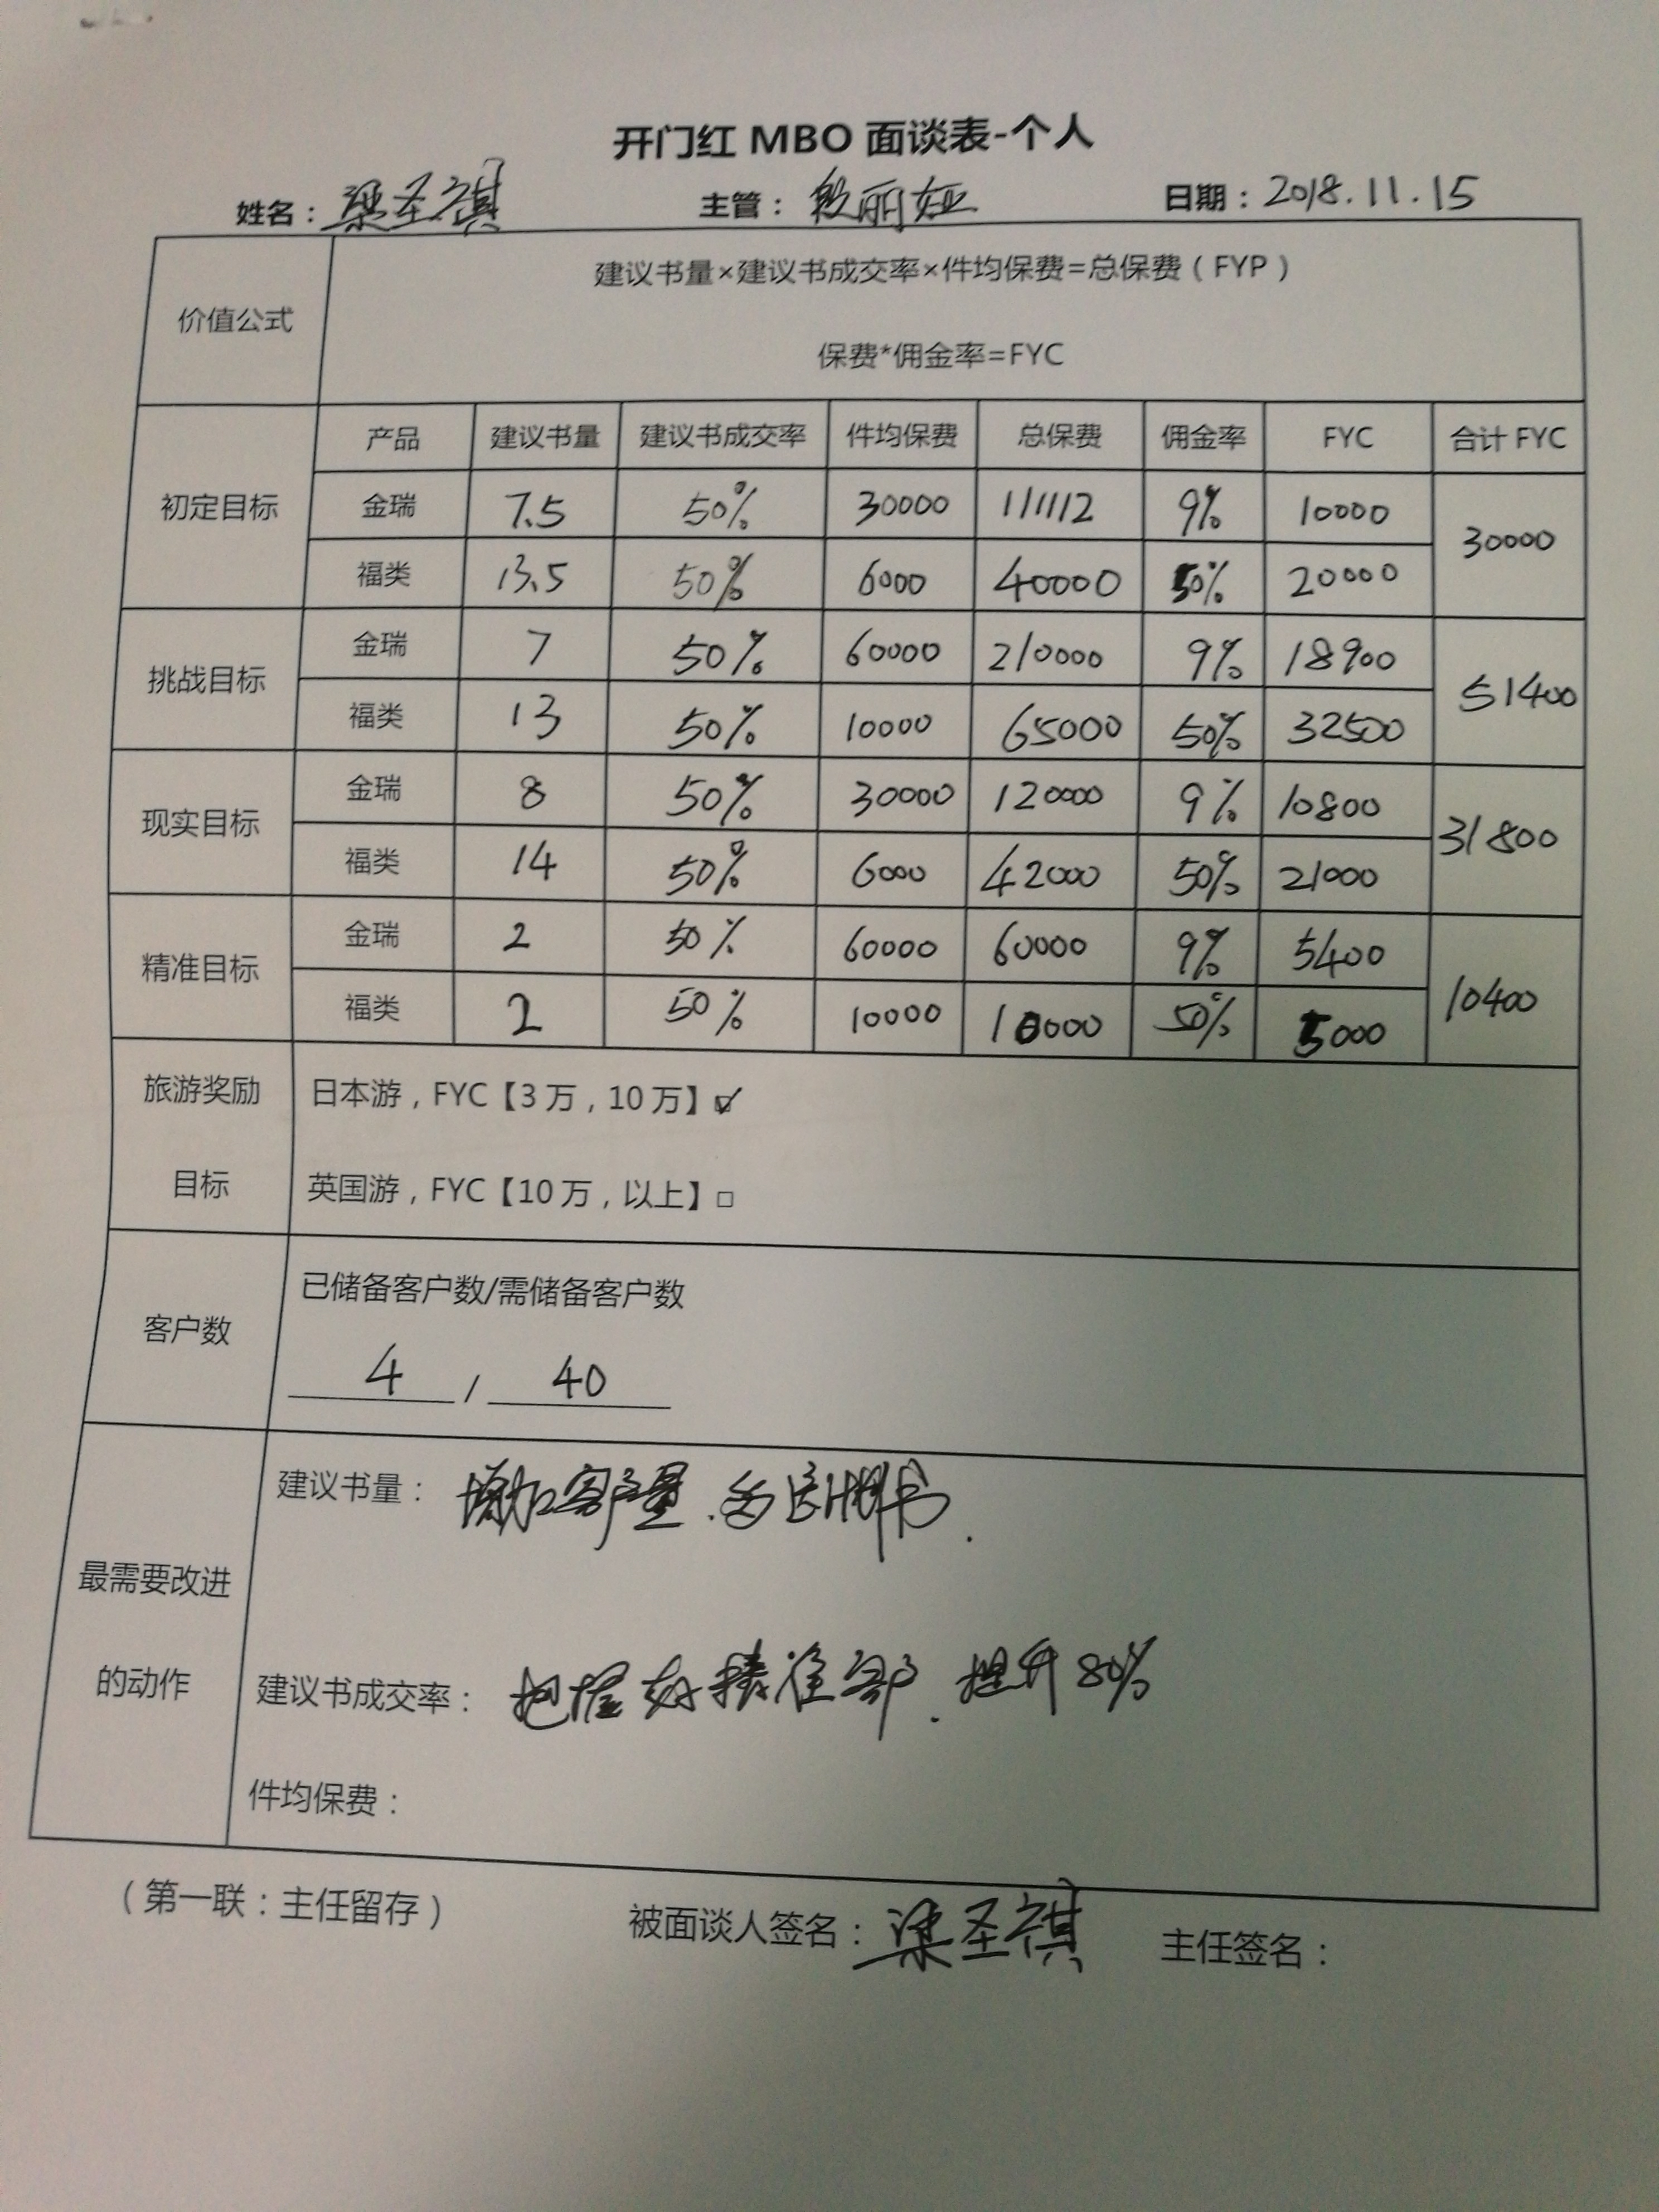 开门红 MBO 面谈表-个人
姓名：梁圣祺 主管：丽娅 日期：2018.11.15
价值公式
建议书量×建议书成交率×件均保费=总保费（FYP）
保费*佣金率=FYC
产品 建议书量 建议书成交率 件均保费 总保费 佣金率 FYC 合计 FYC
初定目标
金瑞 7.5 50% 30000 111112 9% 10000
30000
福类 13.5 50% 6000 40000 50% 20000
挑战目标
金瑞 7 50% 60000 210000 9% 18900
51400
福类 13 50% 10000 65000 50% 32500
现实目标
金瑞 8 50% 30000 120000 9% 10800
31800
福类 14 50% 6000 42000 50% 21000
精准目标
金瑞 2 50% 60000 60000 9% 5400
10400
福类 2 50% 10000 10000 50% 5000
旅游奖励
目标
日本游，FYC【3 万，10 万】☑
英国游，FYC【10 万，以上】□
客户数
已储备客户数/需储备客户数
4 / 40
最需要改进
的动作
建议书量：增加客户量.多送计划书.
建议书成交率：把握好精准客户.提升80%
件均保费：
（第一联：主任留存）
被面谈人签名：梁圣祺 主任签名：